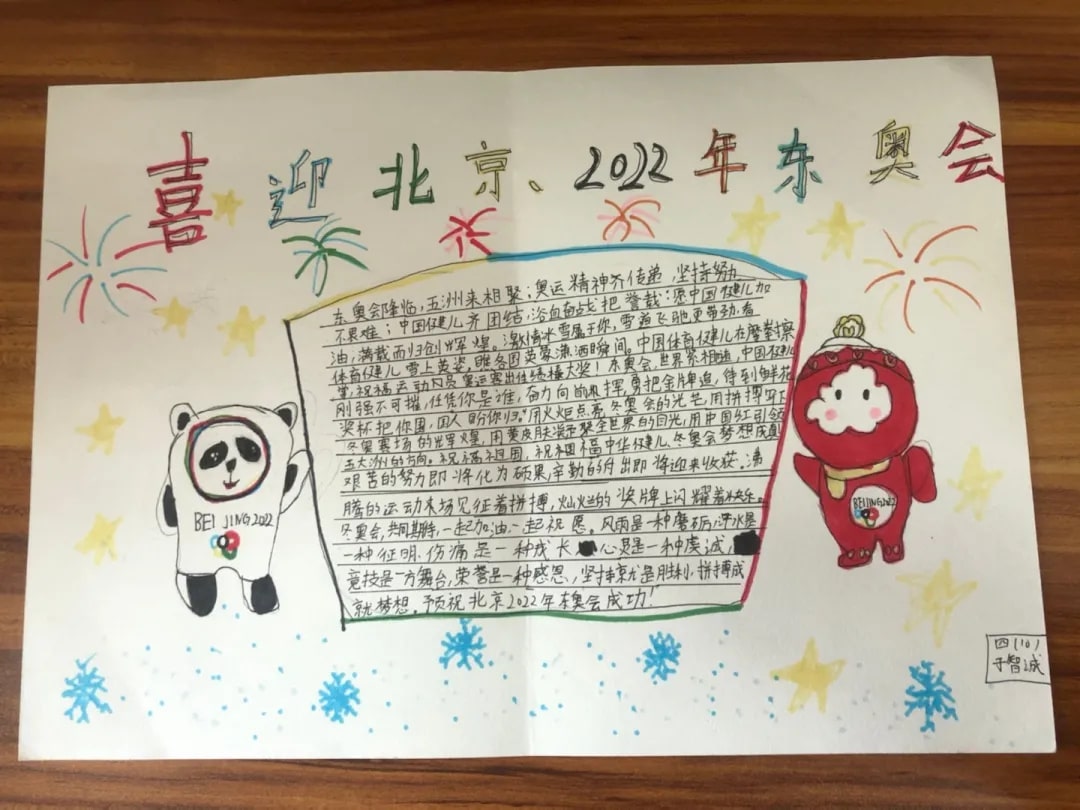 喜迎北京、2022年东奥会
东奥会降临,五洲来相聚;奥运精神齐传递,坚持努力
不畏难;中国健儿齐团结,浴血奋战把誉载:愿中国健儿加
油,满载而归创辉煌。激情冰雪属于你,雪道飞驰更带劲,看
体育健儿雪上英姿,瞧各国英豪潇洒瞬间。中国体育健儿在摩拳擦
掌,祝福运动员奥运赛出佳绩捧大奖!东奥会,世界紧相连,中国健儿
刚强不可摧,任凭你是谁,奋力向前来挥,勇把金牌追,待到鲜花
奖杯把你围,国人盼你归。"用火炬点亮冬奥会的光芒,用拼搏写下
冬奥赛场的辉煌,用黄皮肤凝聚全世界的目光,用中国红引领
五大洲的方向。祝福祖国,祝福中华健儿,冬奥会梦想成真
艰苦的努力即将化为硕果,辛勤的付出即将迎来收获。沸
腾的运动来场见征着拼搏,灿烂的奖牌上闪耀着快乐。
冬奥会,共同期待,一起加油,一起祝愿。风雨是一种磨砺,汗水是
一种征明,伤痛是一种成长,心灵是一种虔诚,
竞技是一方舞台,荣誉是一种感恩,坚持就是胜利,拼搏成
就梦想。预祝北京2022年东奥会成功!
BEIJING2022
BEIJING2022
四(10)
于智诚